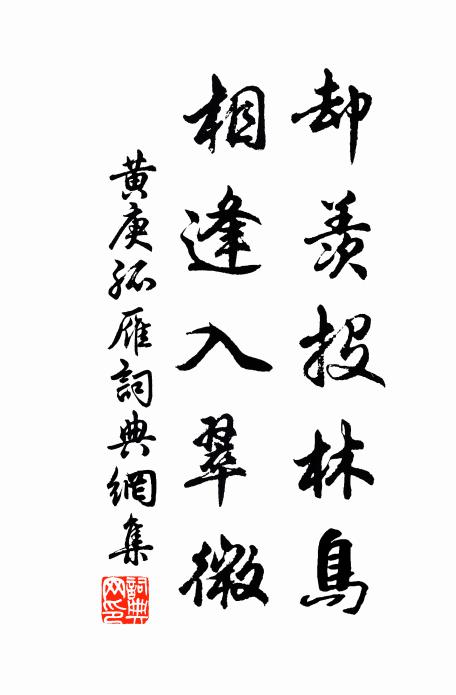 却羨投林鳥
相逢入翠微
黄庚孤雁詞典網集
詞典网印